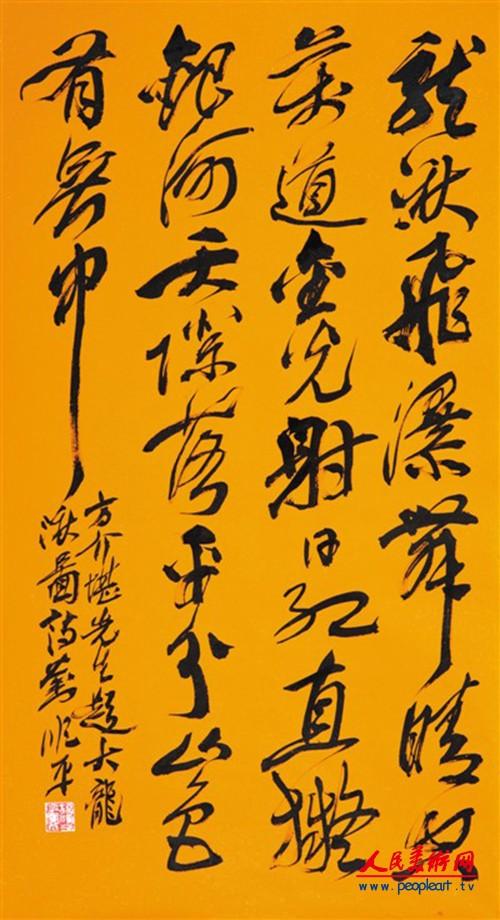 龍湫飛瀑舞晴空
萬道金光射日紅直擬
銀河天際落平分山色
有無中
方介堪先生題大龍
湫圖詩
人民美術网
www.peopleart.tv